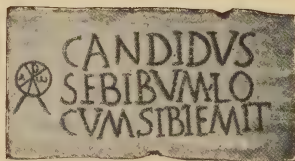 CANDIDVS
SEBIBVM·LO
CVM·SIBIEMIT